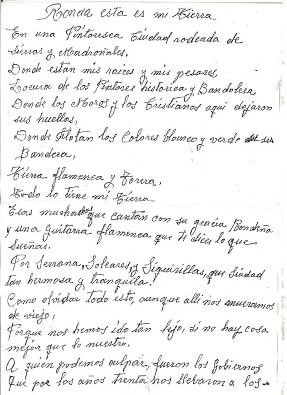 Ronda esta es mi Tierra
En una Pintoresca Ciudad rodeada de
Sierras y Madroñales,
Donde están mis raices y mis pesares,
Locura de los Pintores historica y Bandolera
Donde los Moros y los Cristianos aqui dejaron
sus huellos,
Donde flotan los Colores blanco y verde de su
Bandera,
Tierra flamenca y Torera,
Todo lo tiene mi Tierra
Esas muchachas que cantan con su gracia Rondeña
y una guitarra flamenca que te dice lo que
sueñas.
Por Serrana, Soleares, y Siguirillas, que Ciudad
tan hermosa y tranquila.
Como olvidar todo esto, aunque alli nos muéramos
de viejo,
Porque nos hemos ido tan lejo, si no hay cosa
mejor que lo nuestro.
A quien podemos culpar, fueron los Gobiernos
Que por los años trenta nos llebaron a los-